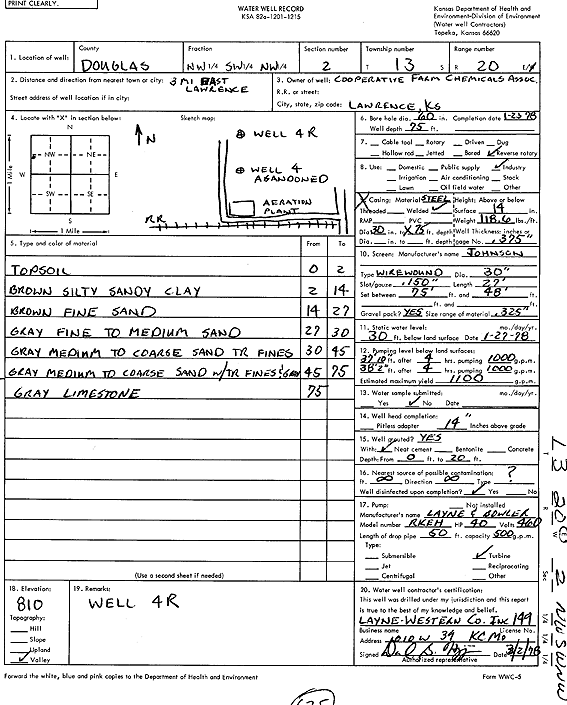 PRINT CLEARLY.
WATER WELL RECORD
KSA 82a-1201-1215
Kansas Department of Health and
Environment-Division of Environment
(Water well Contractors)
Topeka, Kansas 66620
1. Location of well:
County
DOUGLAS
Fraction
NW 1/4 SW 1/4 NW 1/4
Section number
2
Township number
T 13 S
Range number
R 20
2. Distance and direction from nearest town or city: 3 MI EAST
LAWRENCE
Street address of well location if in city:
3. Owner of well: COOPERATIVE FARM CHEMICALS ASSOC.
R.R. or street:
City, state, zip code: LAWRENCE, KS
4. Locate with "X" in section below:
Sketch map:
N
NW NE
W E
SW SE
S
1 Mile
1 Mile
N
WELL 4R
WELL 4
ABANDONED
AERATION
PLANT
RR
6. Bore hole dia. 60 in. Completion date 1-23-78
Well depth 75 ft.
7. Cable tool Rotary Driven Dug
Hollow rod Jetted Bored Reverse rotary
8. Use: Domestic Public supply Industry
Irrigation Air conditioning Stock
Lawn Oil field water Other
9. Casing: Material STEEL Height: Above or below
Threaded Welded Surface 14 in.
RMP PVC Weight 118.6 lbs./ft.
Dia. 30 in. to 75 ft. depth Wall Thickness: inches or
Dia. in. to ft. depth gage No. .375"
10. Screen: Manufacturer's name JOHNSON
Type WIREWOUND Dia. 30"
Slot/gauze .150" Length 27'
Set between 75' ft. and 48' ft.
Gravel pack? YES Size range of material .325"
11. Static water level: mo./day/yr.
30 ft. below land surface Date 1-27-78
12. Pumping level below land surfaces:
37'10" ft. after 4 hrs. pumping 1000 g.p.m.
38'2" ft. after 4 hrs. pumping 1000 g.p.m.
Estimated maximum yield 1100 g.p.m.
13. Water sample submitted: mo./day/yr.
Yes No Date
14. Well head completion:
Pitless adapter 14" Inches above grade
15. Well grouted? YES
With: Neat cement Bentonite Concrete
Depth: From 0 ft. to 20 ft.
16. Nearest source of possible contamination: ?
ft. ∞ Direction ∞ Type
Well disinfected upon completion? Yes No
17. Pump: Not installed
Manufacturer's name LAYNE & BOWLER
Model number RKEH HP 40 Volts 460
Length of drop pipe 60 ft. capacity 500 g.p.m.
Type:
Submersible Turbine
Jet Reciprocating
Centrifugal Other
5. Type and color of material From To
TOPSOIL 0 2
BROWN SILTY SANDY CLAY 2 14
BROWN FINE SAND 14 27
GRAY FINE TO MEDIUM SAND 27 30
GRAY MEDIUM TO COARSE SAND TR FINES 30 45
GRAY MEDIUM TO COARSE SAND W/TR FINES & GRAV 45 75
GRAY LIMESTONE 75
(Use a second sheet if needed)
18. Elevation:
810
Topography:
Hill
Slope
Upland
Valley
19. Remarks:
WELL 4R
20. Water well contractor's certification:
This well was drilled under my jurisdiction and this report
is true to the best of my knowledge and belief.
LAYNE-WESTERN CO. INC 144
Business name License No.
Address 1010 W 39 KCMO
Signed Date 3/2/78
Authorized representative
Forward the white, blue and pink copies to the Department of Health and Environment
Form WWC-5